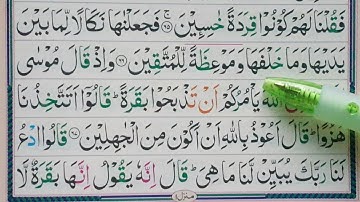 فَقُلْنَا لَهُمْ كُوْنُوْا قِرَدَةً خٰسِـِٕيْنَ ۚ ۶۵ فَجَعَلْنٰهَا نَكَالًا لِّمَا بَيْنَ
يَدَيْهَا وَمَا خَلْفَهَا وَمَوْعِظَةً لِّلْمُتَّقِيْنَ ۶۶ وَاِذْ قَالَ مُوْسٰى
اللّٰهَ يَاْمُرُكُمْ اَنْ تَذْبَحُوْا بَقَرَةً ؕ قَالُوْٓا اَتَتَّخِذُنَا
هُزُوًا ؕ قَالَ اَعُوْذُ بِاللّٰهِ اَنْ اَكُوْنَ مِنَ الْجٰهِلِيْنَ ۶۷ قَالُوا ادْعُ
لَنَا رَبَّكَ يُبَيِّنْ لَّنَا مَا هِىَ ؕ قَالَ اِنَّهٗ يَقُوْلُ اِنَّهَا بَقَرَةٌ لَّا